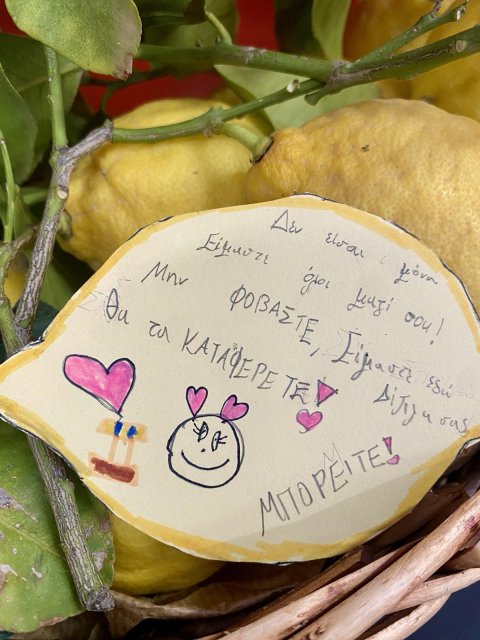 Δεν είσαι μόνη
Είμαστε όλοι μαζί σου!
Μην ΦΟΒΑΣΤΕ, Είμαστε εδώ
Θα τα ΚΑΤΑΦΕΡΕΤΕ! Δίπλα σας
ΜΠΟΡΕΙΤΕ!